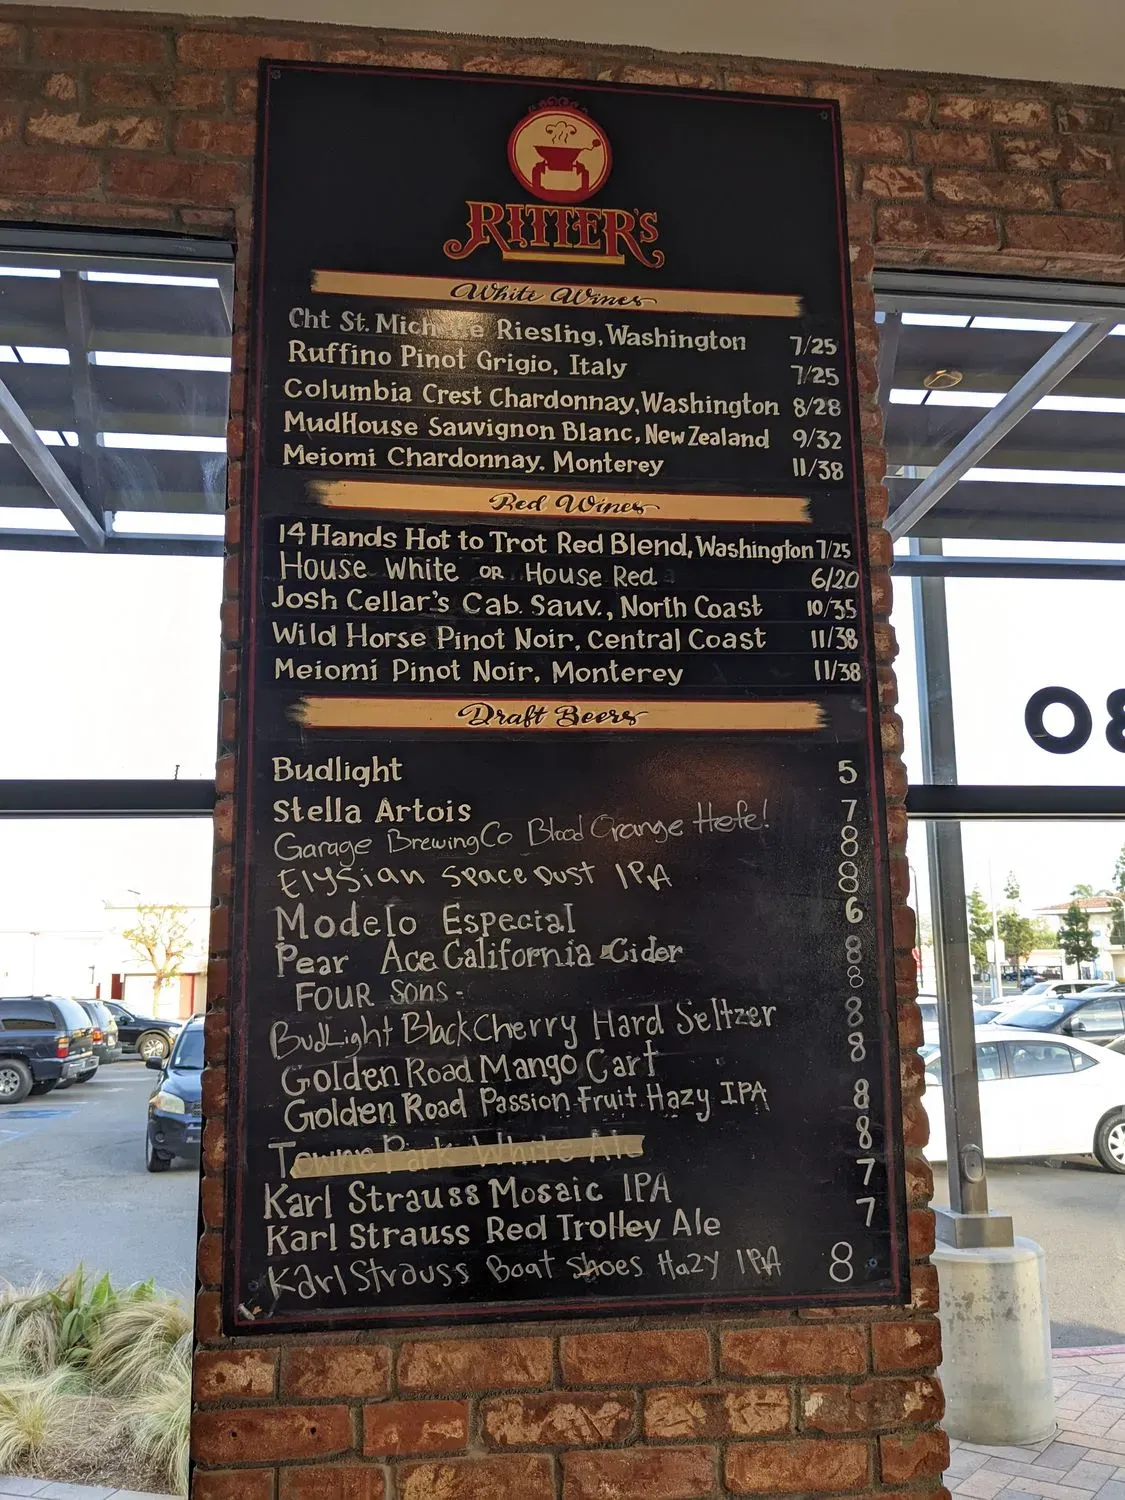 RITTER'S
White Wines
Cht St. Mich e Riesling, Washington 7/25
Ruffino Pinot Grigio, Italy 7/25
Columbia Crest Chardonnay, Washington 8/28
MudHouse Sauvignon Blanc, New Zealand 9/32
Meiomi Chardonnay. Monterey 11/38
Red Wines
14 Hands Hot to Trot Red Blend, Washington 7/25
House White OR House Red 6/20
Josh Cellar's Cab. Sauv., North Coast 10/35
Wild Horse Pinot Noir, Central Coast 11/38
Meiomi Pinot Noir, Monterey 11/38
Draft Beers
Budlight 5
Stella Artois 7
Garage Brewing Co Blood Orange Hefe! 8
Elysian Space Dust IPA 8
Modelo Especial 6
Pear Ace California Cider 8
FOUR SONS - 8
BudLight Black Cherry Hard Seltzer 8
Golden Road Mango Cart 8
Golden Road Passion Fruit Hazy IPA 8
Towne Park White Ale 8
Karl Strauss Mosaic IPA 7
Karl Strauss Red Trolley Ale 7
Karl Strauss Boat Shoes Hazy IPA 8